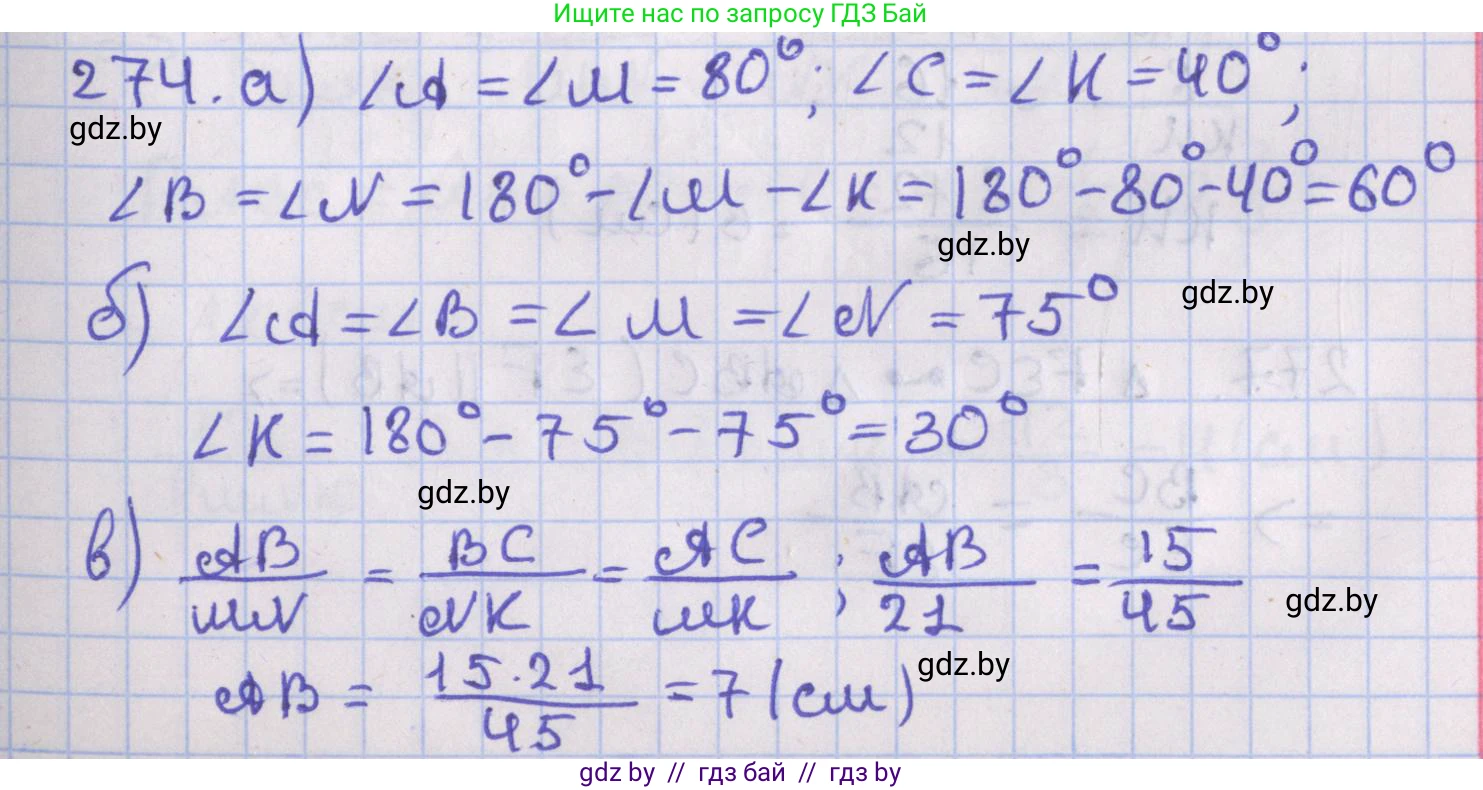 Ищите нас по запросу ГДЗ Бай
274. а) ∠A = ∠M = 80°; ∠C = ∠K = 40°;
gdz.by
∠B = ∠N = 180° - ∠M - ∠K = 180° - 80° - 40° = 60°
gdz.by
б) ∠A = ∠B = ∠M = ∠N = 75°
gdz.by
∠K = 180° - 75° - 75° = 30°
gdz.by
в) AB/MN = BC/NK = AC/MK ; AB/21 = 15/45
gdz.by
AB = 15·21/45 = 7 (см)
gdz.by
gdz.by // гдз бай // гдз by